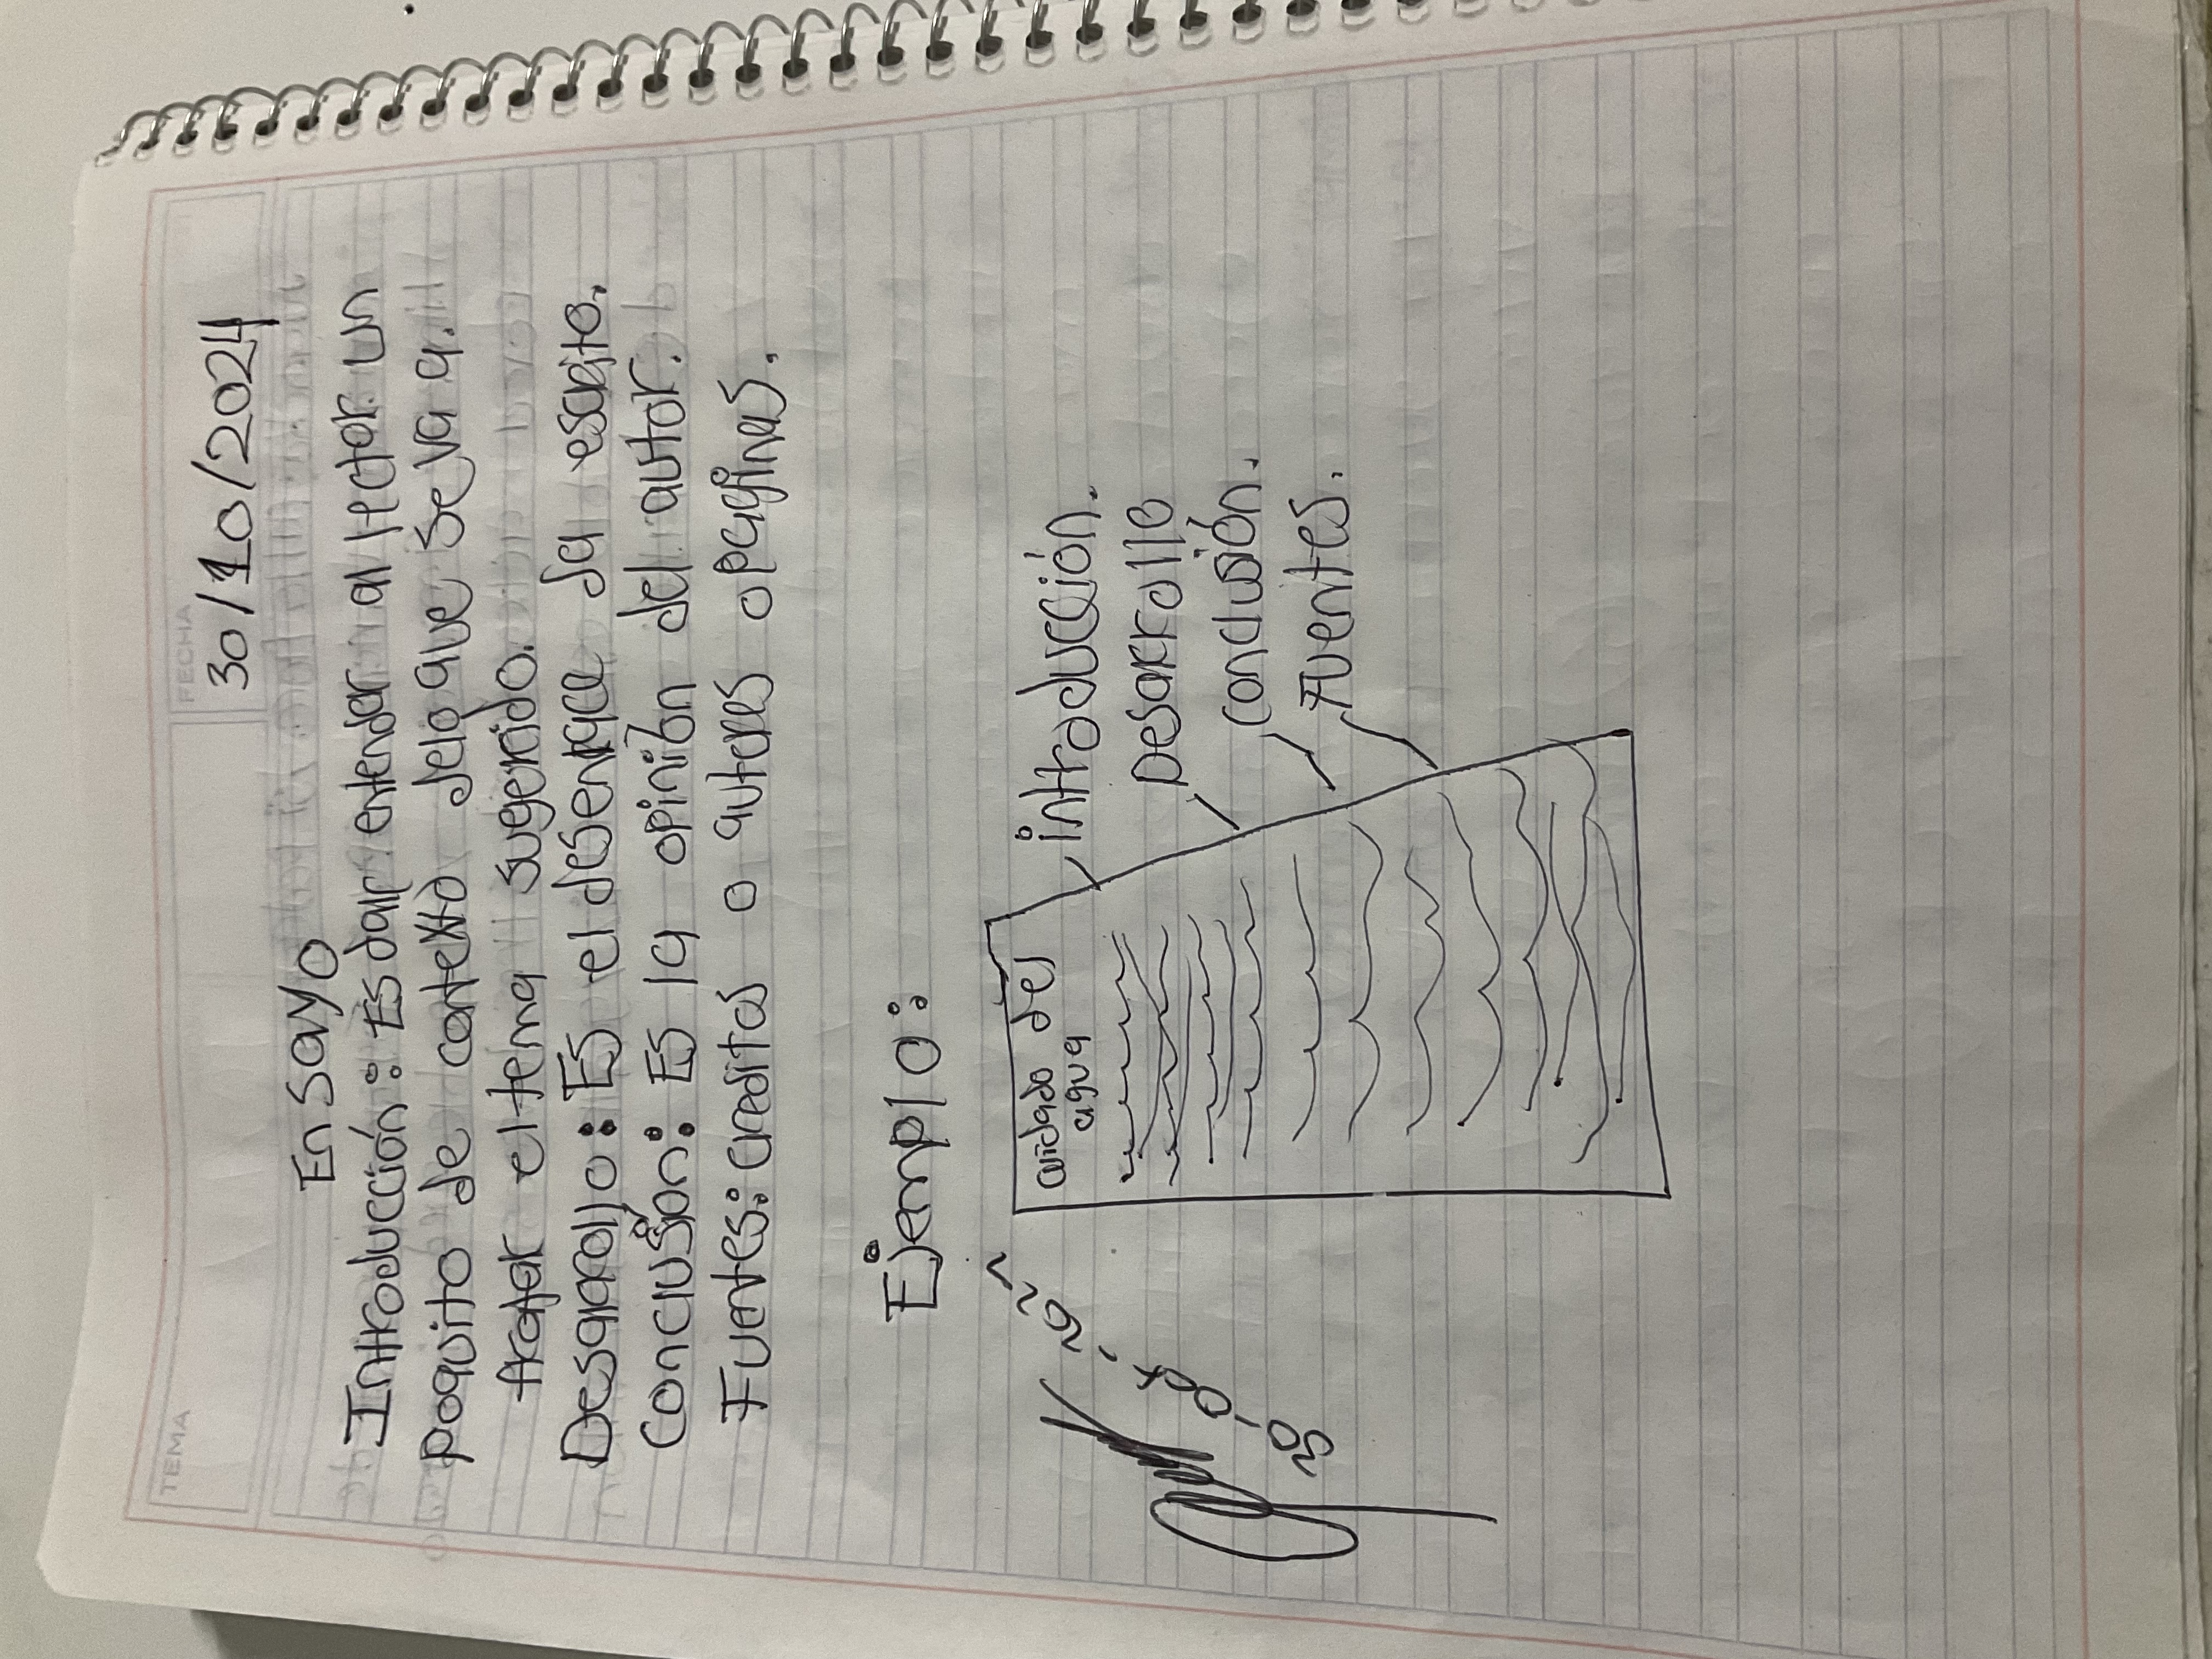 TEMA
FECHA
30/10/2024
Ensayo
Introducción: Es dar entender al lector un
poquito de contexto delo que se va a.
tratar el tema sugerido.
Desarollo: Es el desenlace da escrito.
Conclusión: Es la opinión del autor.
Fuentes: creditos o autores o paginas.
Ejemplo:
cuidado del
agua
introducción.
Desarrollo
conclusión.
Fuentes.